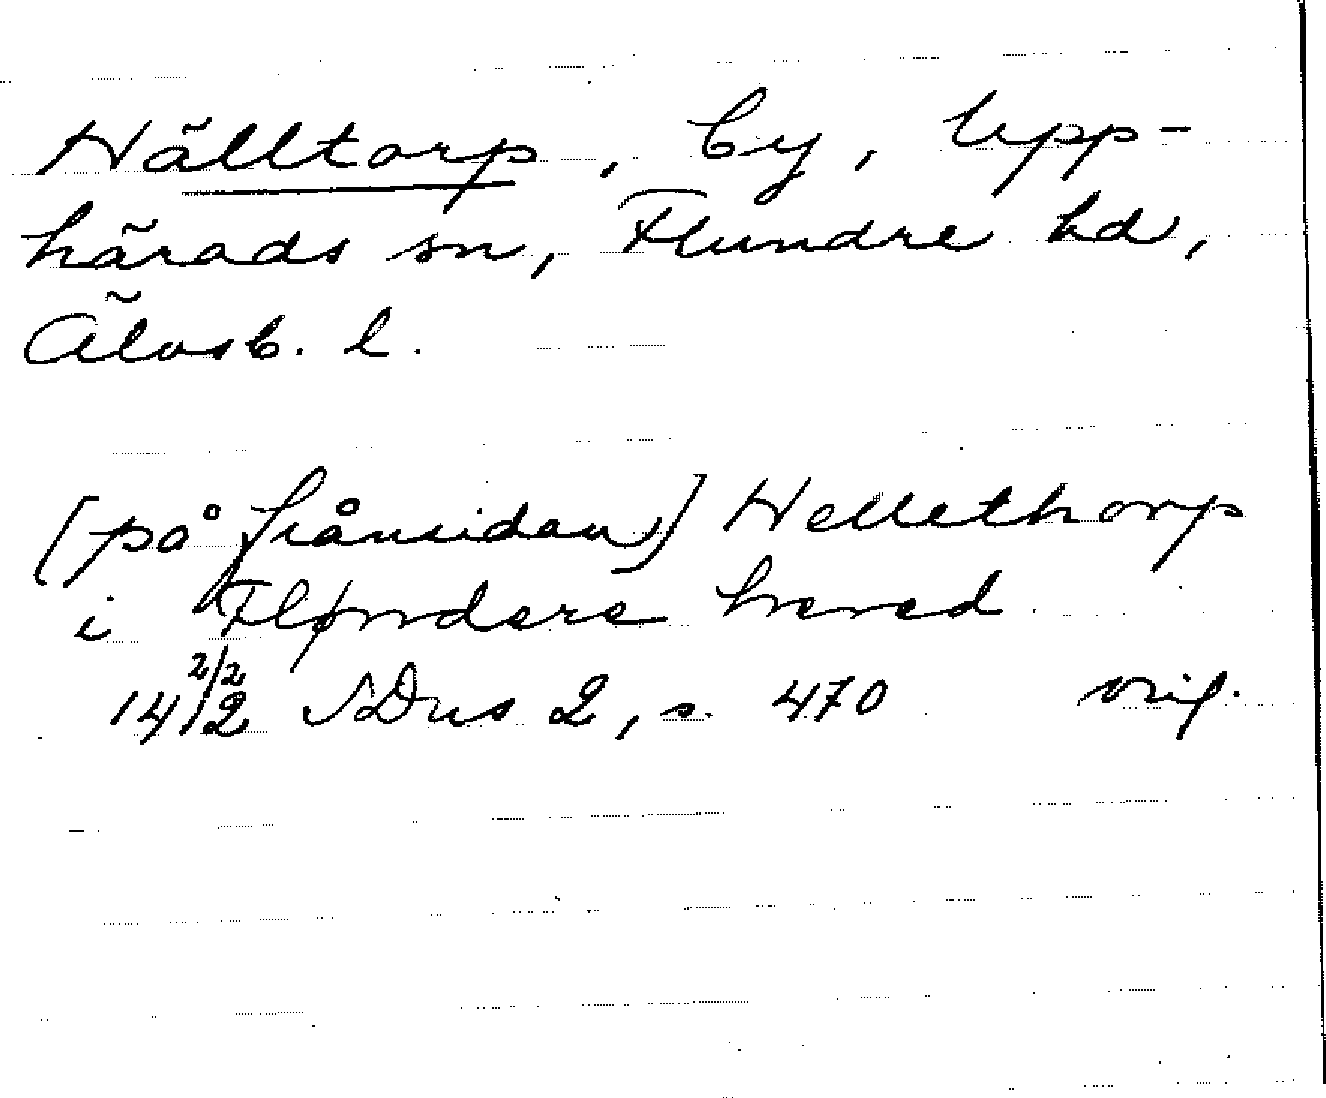 Hälltorp, by, Upp-
härads sn, Flundre hd,
Älvsb. l.
[på frånsidan] Hellethorp
i Fløndere hered
14 2/2 12 SDns 2, s. 470 orig.